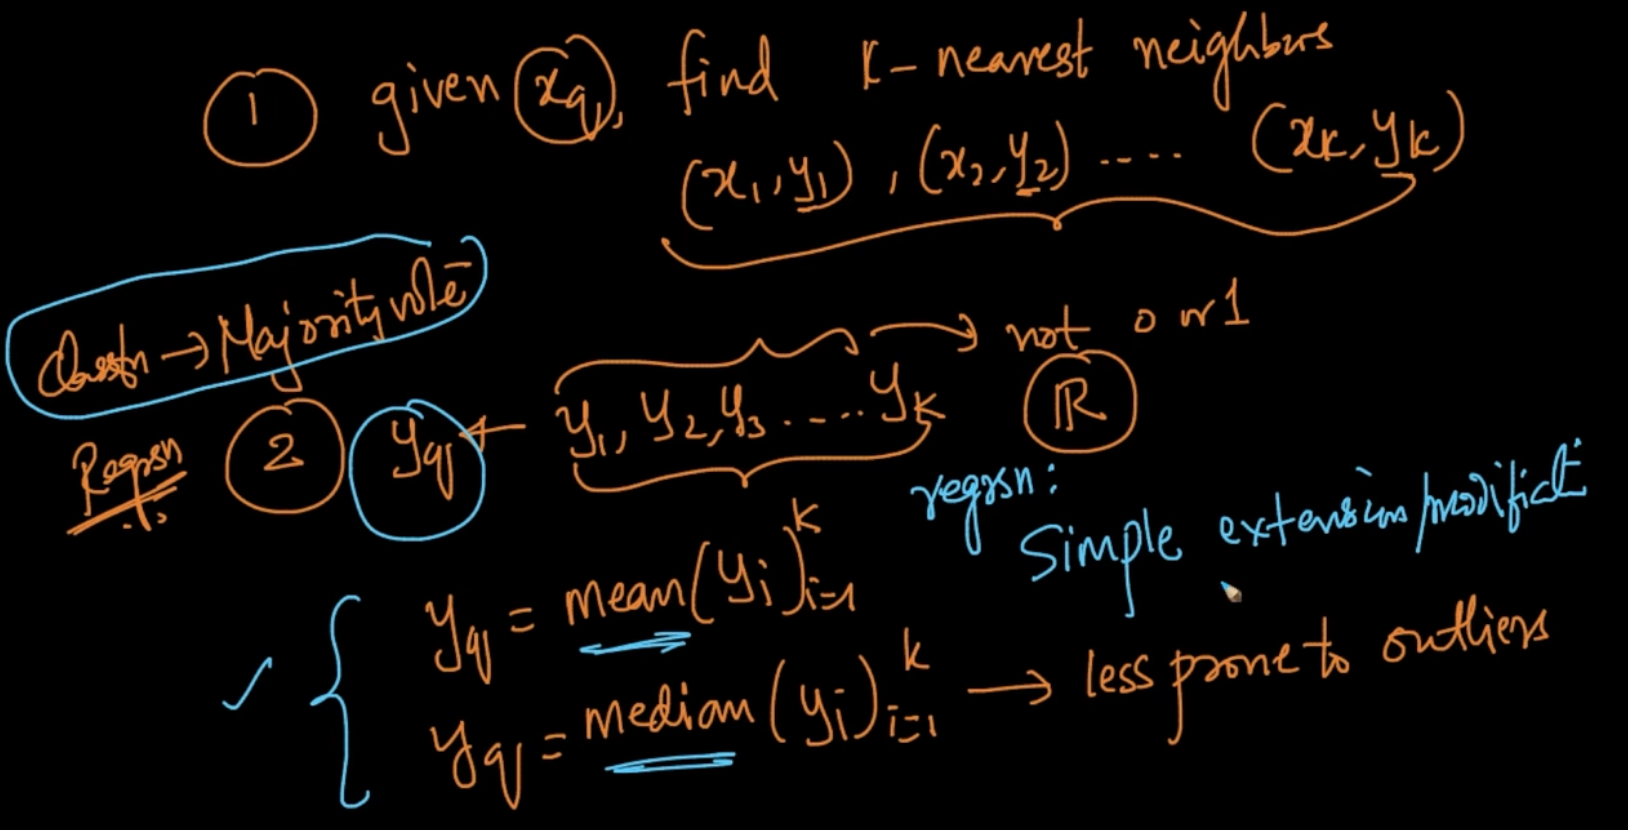 ① given x_q, find K-nearest neighbors
(x₁, y₁), (x₂, y₂) ..... (x_K, y_K)
Classfn → Majority vote
not 0 or 1
Regrsn ② y_q ← y₁, y₂, y₃ ..... y_K ℝ
regrsn:
Simple extension/modificat
y_q = mean(y_i)_{i=1}^k
y_q = median(y_i)_{i=1}^k → less prone to outliers